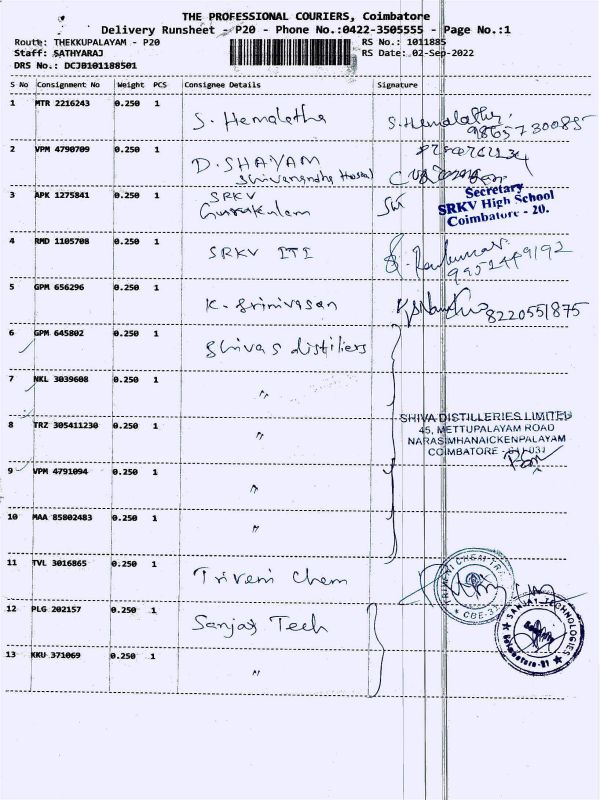 THE PROFESSIONAL COURIERS, Coimbatore
Delivery Runsheet - P20 - Phone No.:0422-3505555 - Page No.:1
Route: THEKKUPALAYAM - P20
RS No.: 1011885
Staff: SATHYARAJ
RS Date: 02-Sep-2022
DRS No.: DCJ0101188501
S No Consignment No Weight PCS Consignee Details Signature
1 MTR 2216243 0.250 1 S. Hemalatha S. Hemalatha
9865730085
2 VPM 4790709 0.250 1 D. SHAYAM
Shivanandha Hostel
3 APK 1275841 0.250 1 SRKV
Gurukulam
Secretary
SRKV High School
Coimbatore - 20.
4 RMD 1105708 0.250 1 SRKV ITI
9951449192
5 GPM 656296 0.250 1 K. Srinivasan
8220551875
6 GPM 645802 0.250 1 Shivas distiliers
7 NKL 3039608 0.250 1 "
8 TRZ 305411230 0.250 1 "
SHIVA DISTILLERIES LIMITED
45, METTUPALAYAM ROAD
NARASIMHANAICKENPALAYAM
COIMBATORE - 641 031
9 VPM 4791094 0.250 1 "
10 MAA 85802483 0.250 1 "
11 TVL 3016865 0.250 1 Triveni Chem
TRIVENI CHEM
CBE-31
12 PLG 202157 0.250 1 Sanjay Tech
SANJAY TECHNOLOGIES
Coimbatore-31
13 KKU 371069 0.250 1 "